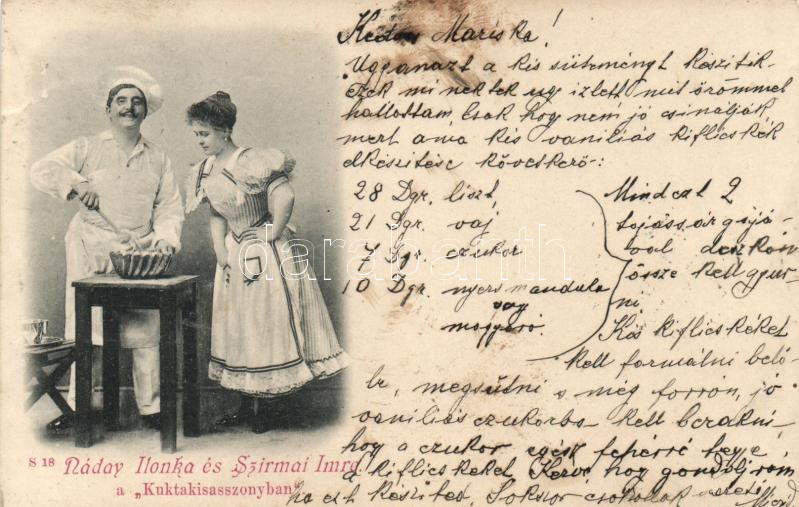 Kedves Mariska!
Ugyanazt a kis süteményt készítik
ezek mi nektek ugy izlett mit örömmel
hallottam, csak hogy nem jó csinálják,
mert ama kis vaniliás kiflicskék
elkészitése következő:
28 Dgr. liszt,
21 Dgr. vaj
7 Dgr. czukor
10 Dgr. nyers mandula
vagy
mogyoró.
Mindezt 2
tojássárgájá-
val deszkán
össze kell gyur-
ni
Kis kiflicskéket
kell formálni belő-
le, megsütni s még forron, jó
vaniliás czukorba kell berakni,
hogy a czukor egész fehérré tegye
a kiflicskéket. Kérve, hogy gondolj rám
ha ezt készited, Sokszor csókollak
S 18 Náday Ilonka és Szirmai Imre
a „Kuktakisasszonyban"
darabanth